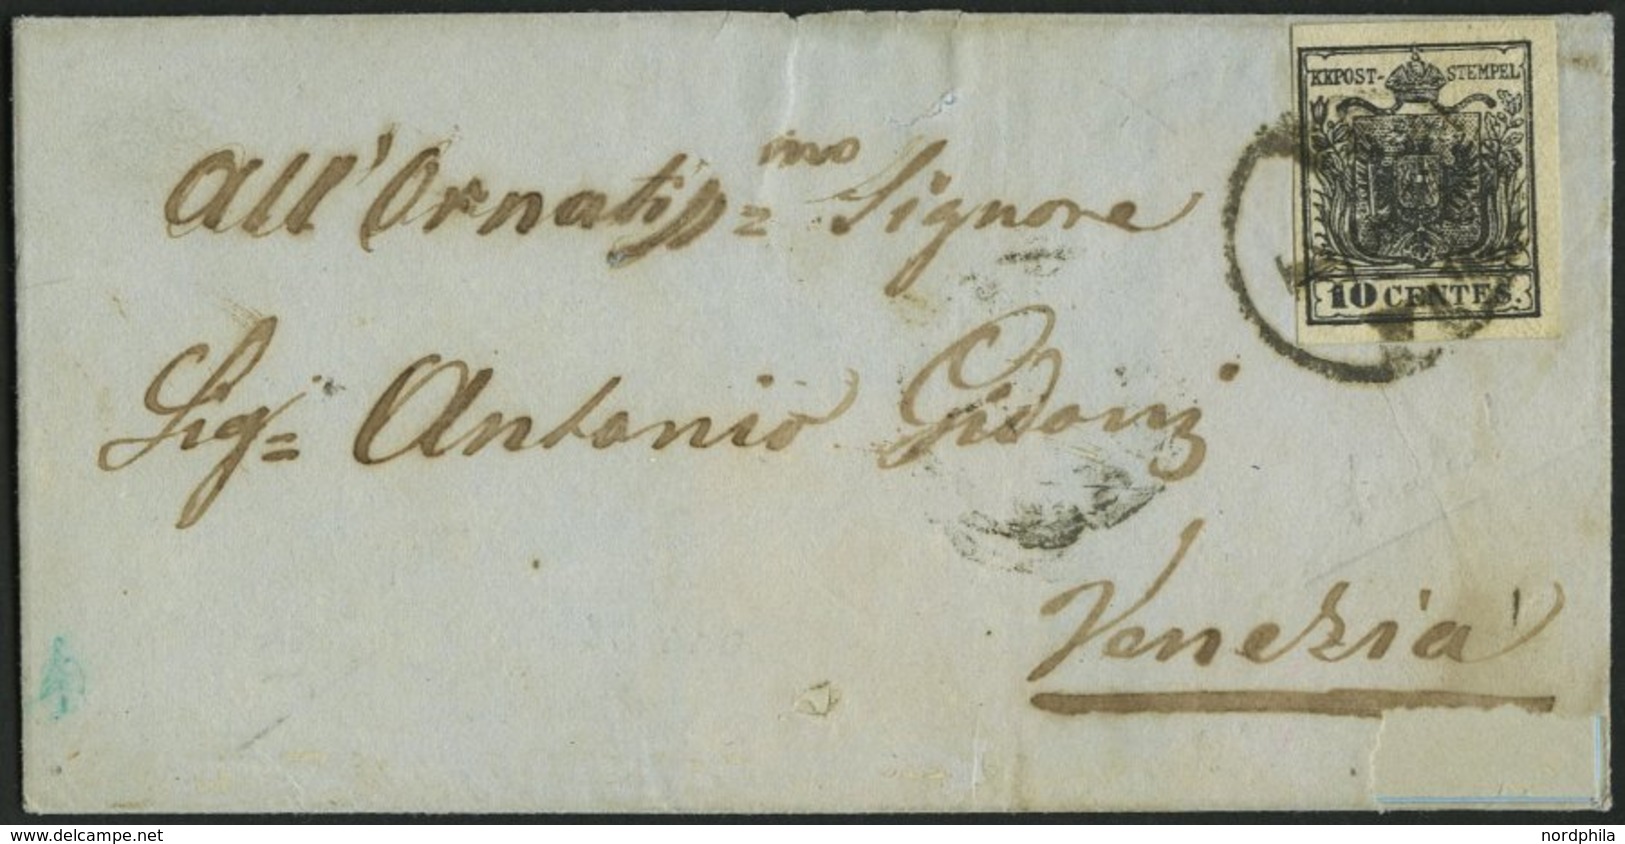 KKPOST-STEMPEL
10 CENTES.
All'Ornatiss= imo Signore
Sig= Antonio Gidoni
Venezia
www.delcampe.net
nordphila